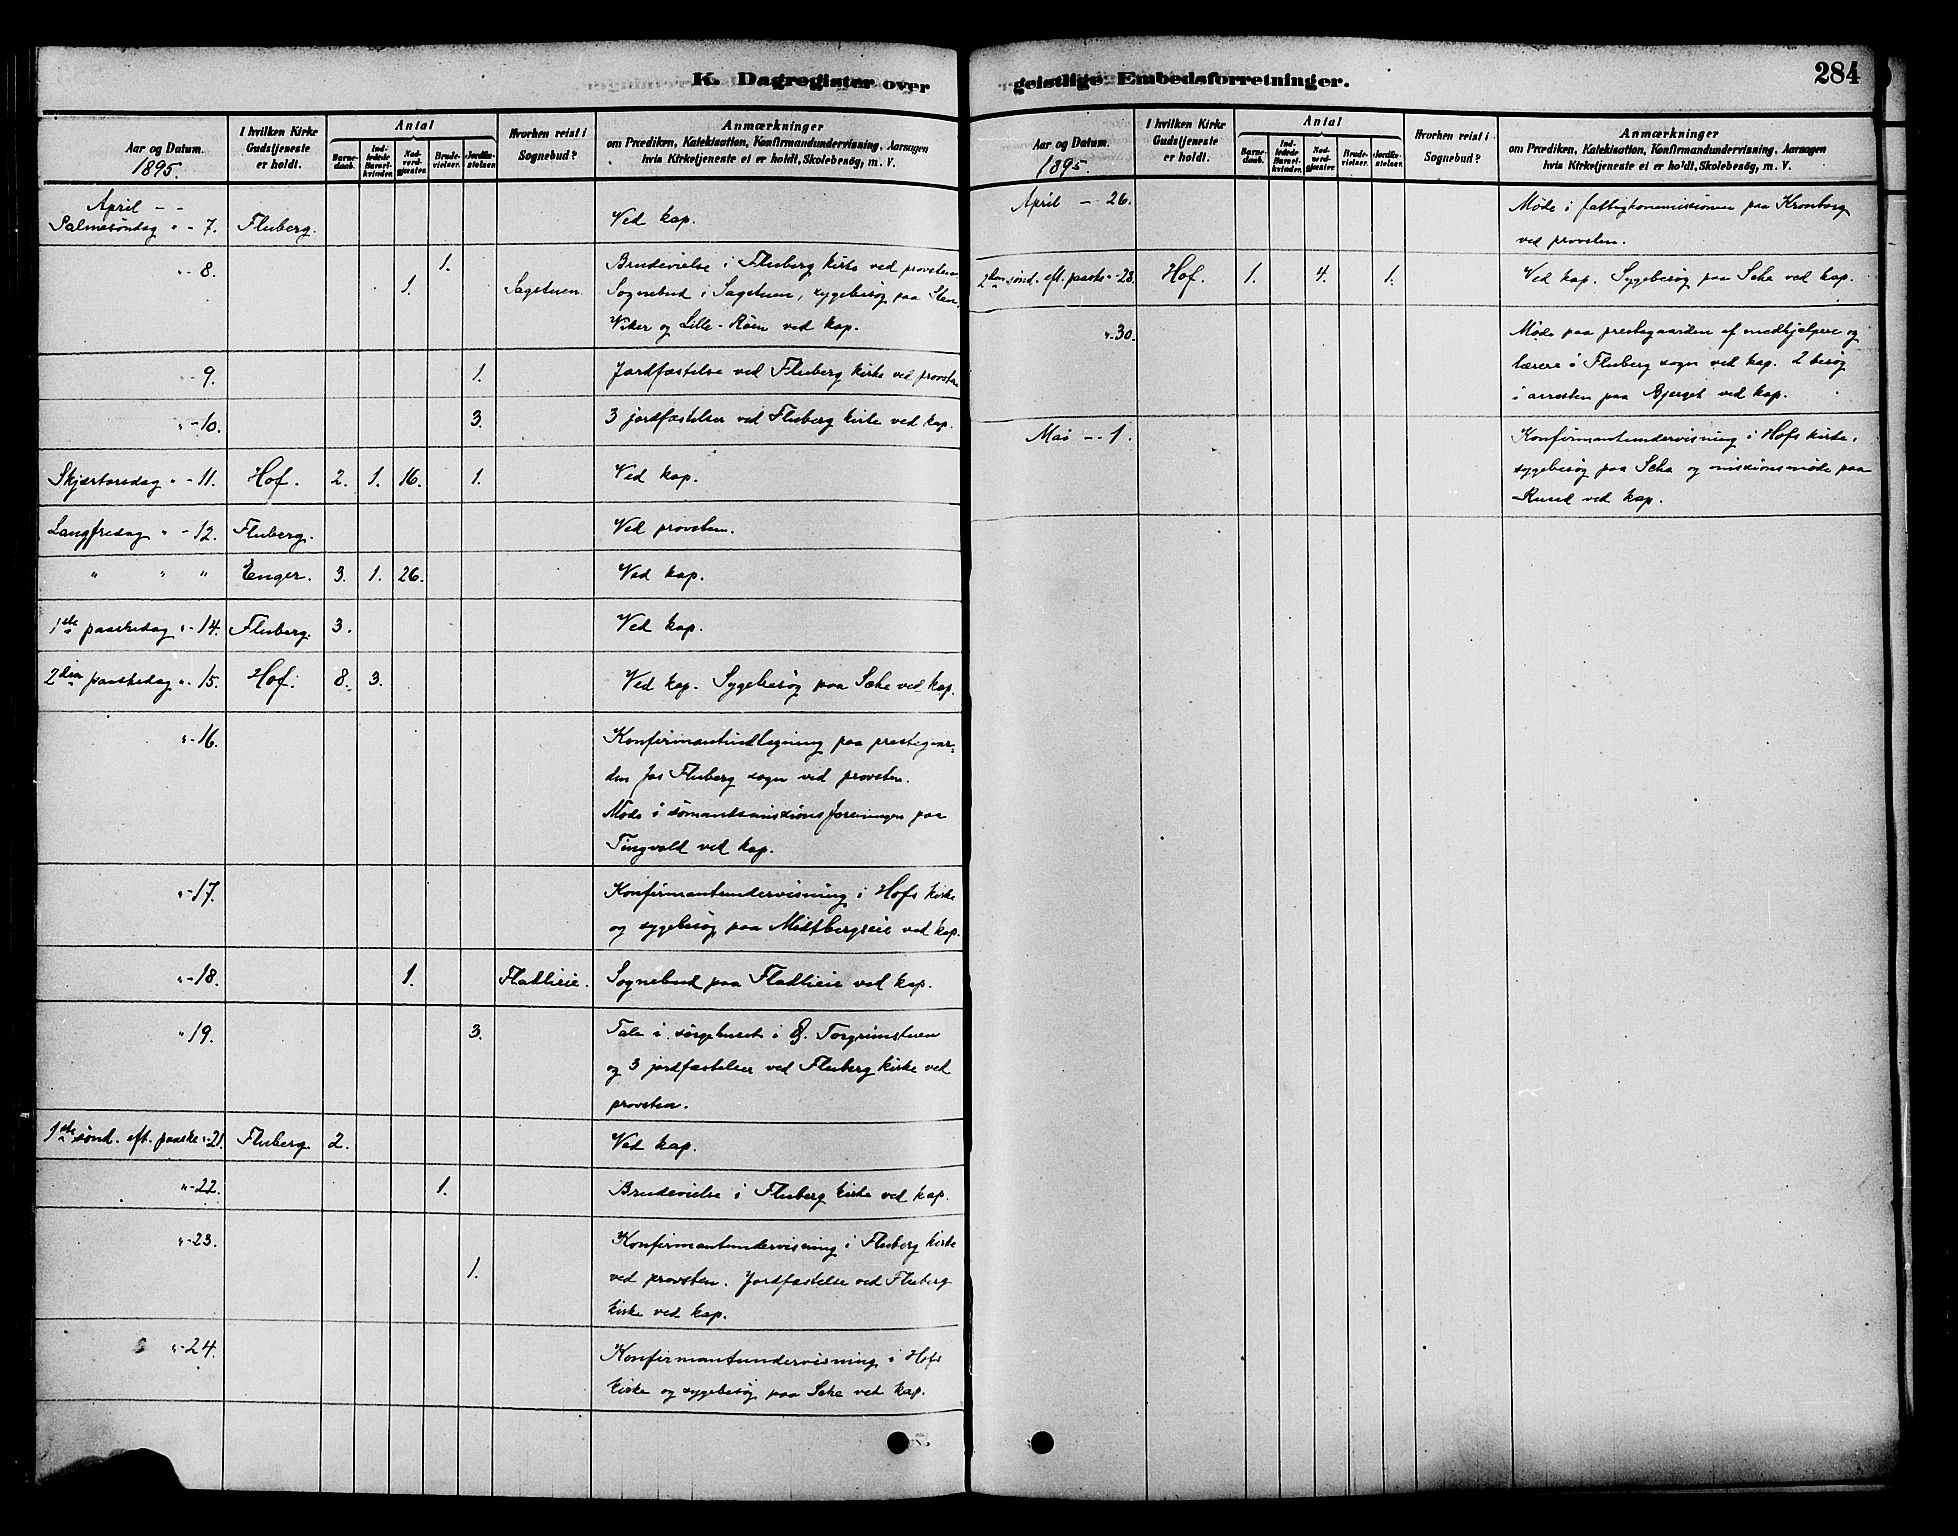 K. Dagregister over
Aar og Datum.
1895.
I hvilken Kirke
Gudstjeneste
er holdt.
Antal
Barne-
daab.
Ind-
ledede
Barsel-
kvinder.
Nad-
verd-
gjester.
Brude-
vielser.
Jordfæ-
stelser.
Hvorhen reist i
Sognebud?
Anmærkninger
om Prædiken, Katekisation, Konfirmandundervisning, Aarsagen
hvis Kirketjeneste ei er holdt, Skolebesög, m. V.
April - -
Palmesöndag " - 7. Fluberg. Ved kap.
" - 8. 1. Brudevielse i Fluberg kirke ved provsten
1. Sagstuen. Sognebud i Sagstuen, sygebesøg paa
Viker og Lille-Röen ved kap.
" - 9. 1. Jordfæstelse ved Fluberg kirke ved provsten
" - 10. 3. 3 jordfæstelser ved Fluberg kirke ved kap.
Skjærtorsdag " - 11. Hof. 2. 1. 16. 1. Ved kap.
Langfredag " - 12. Fluberg. Ved provsten.
" " " Enger. 3. 1. 26. Ved kap.
1ste paaskedag " - 14. Fluberg. 3. Ved kap.
2den paaskedag " - 15. Hof. 8. 3. Ved kap. Sygebesøg paa Sehe ved kap.
" - 16. Konfirmantindtegning paa prestegaar-
den for Fluberg sogn ved provsten.
Møde i sömandsmissionsforeningen paa
Tingvold ved kap.
" - 17. Konfirmantundervisning i Hofs kirke
og sygebesøg paa Midtbergseie ved kap.
" - 18. 1. Fladlieie. Sognebud paa Fladlieie ved kap.
" 19. 3. Tale i sørgehuset i Ø. Torgrimstuen
og 3 jordfæstelser ved Fluberg kirke ved
provsten.
1ste sönd. eft. paaske " - 21. Fluberg. 2. Ved kap.
" - 22. 1. Brudevielse i Fluberg kirke ved kap.
" - 23. Konfirmantundervisning i Fluberg kirke
1. ved provsten. Jordfæstelse ved Fluberg
kirke ved kap.
" - 24. Konfirmantundervisning i Hofs
kirke og sygebesøg paa Sehe ved kap.
geistlige Embedsforretninger.
284
Aar og Datum.
1895.
I hvilken Kirke
Gudstjeneste
er holdt.
Antal
Barne-
daab.
Ind-
ledede
Barsel-
kvinder.
Nad-
verd-
gjester.
Brude-
vielser.
Jordfæ-
stelser.
Hvorhen reist i
Sognebud?
Anmærkninger
om Prædiken, Katekisation, Konfirmandundervisning, Aarsagen
hvis Kirketjeneste ei er holdt, Skolebesög, m. V.
April - 26. Møde i fattigkommissionen paa Kronborg
ved provsten.
2den sønd. eft. paaske " - 28. Hof. 1. 4. 1. Ved kap. Sygebesøg paa Sehe ved kap.
" - 30. Møde paa prestegaarden af medhjelpere og
lærere i Fluberg sogn ved kap. 2 besøg
i arresten paa Bjerget ved kap.
Mai - - 1. Konfirmantundervisning i Hofs kirke,
sygebesøg paa Sehe og missionsmøde paa
Rund ved kap.